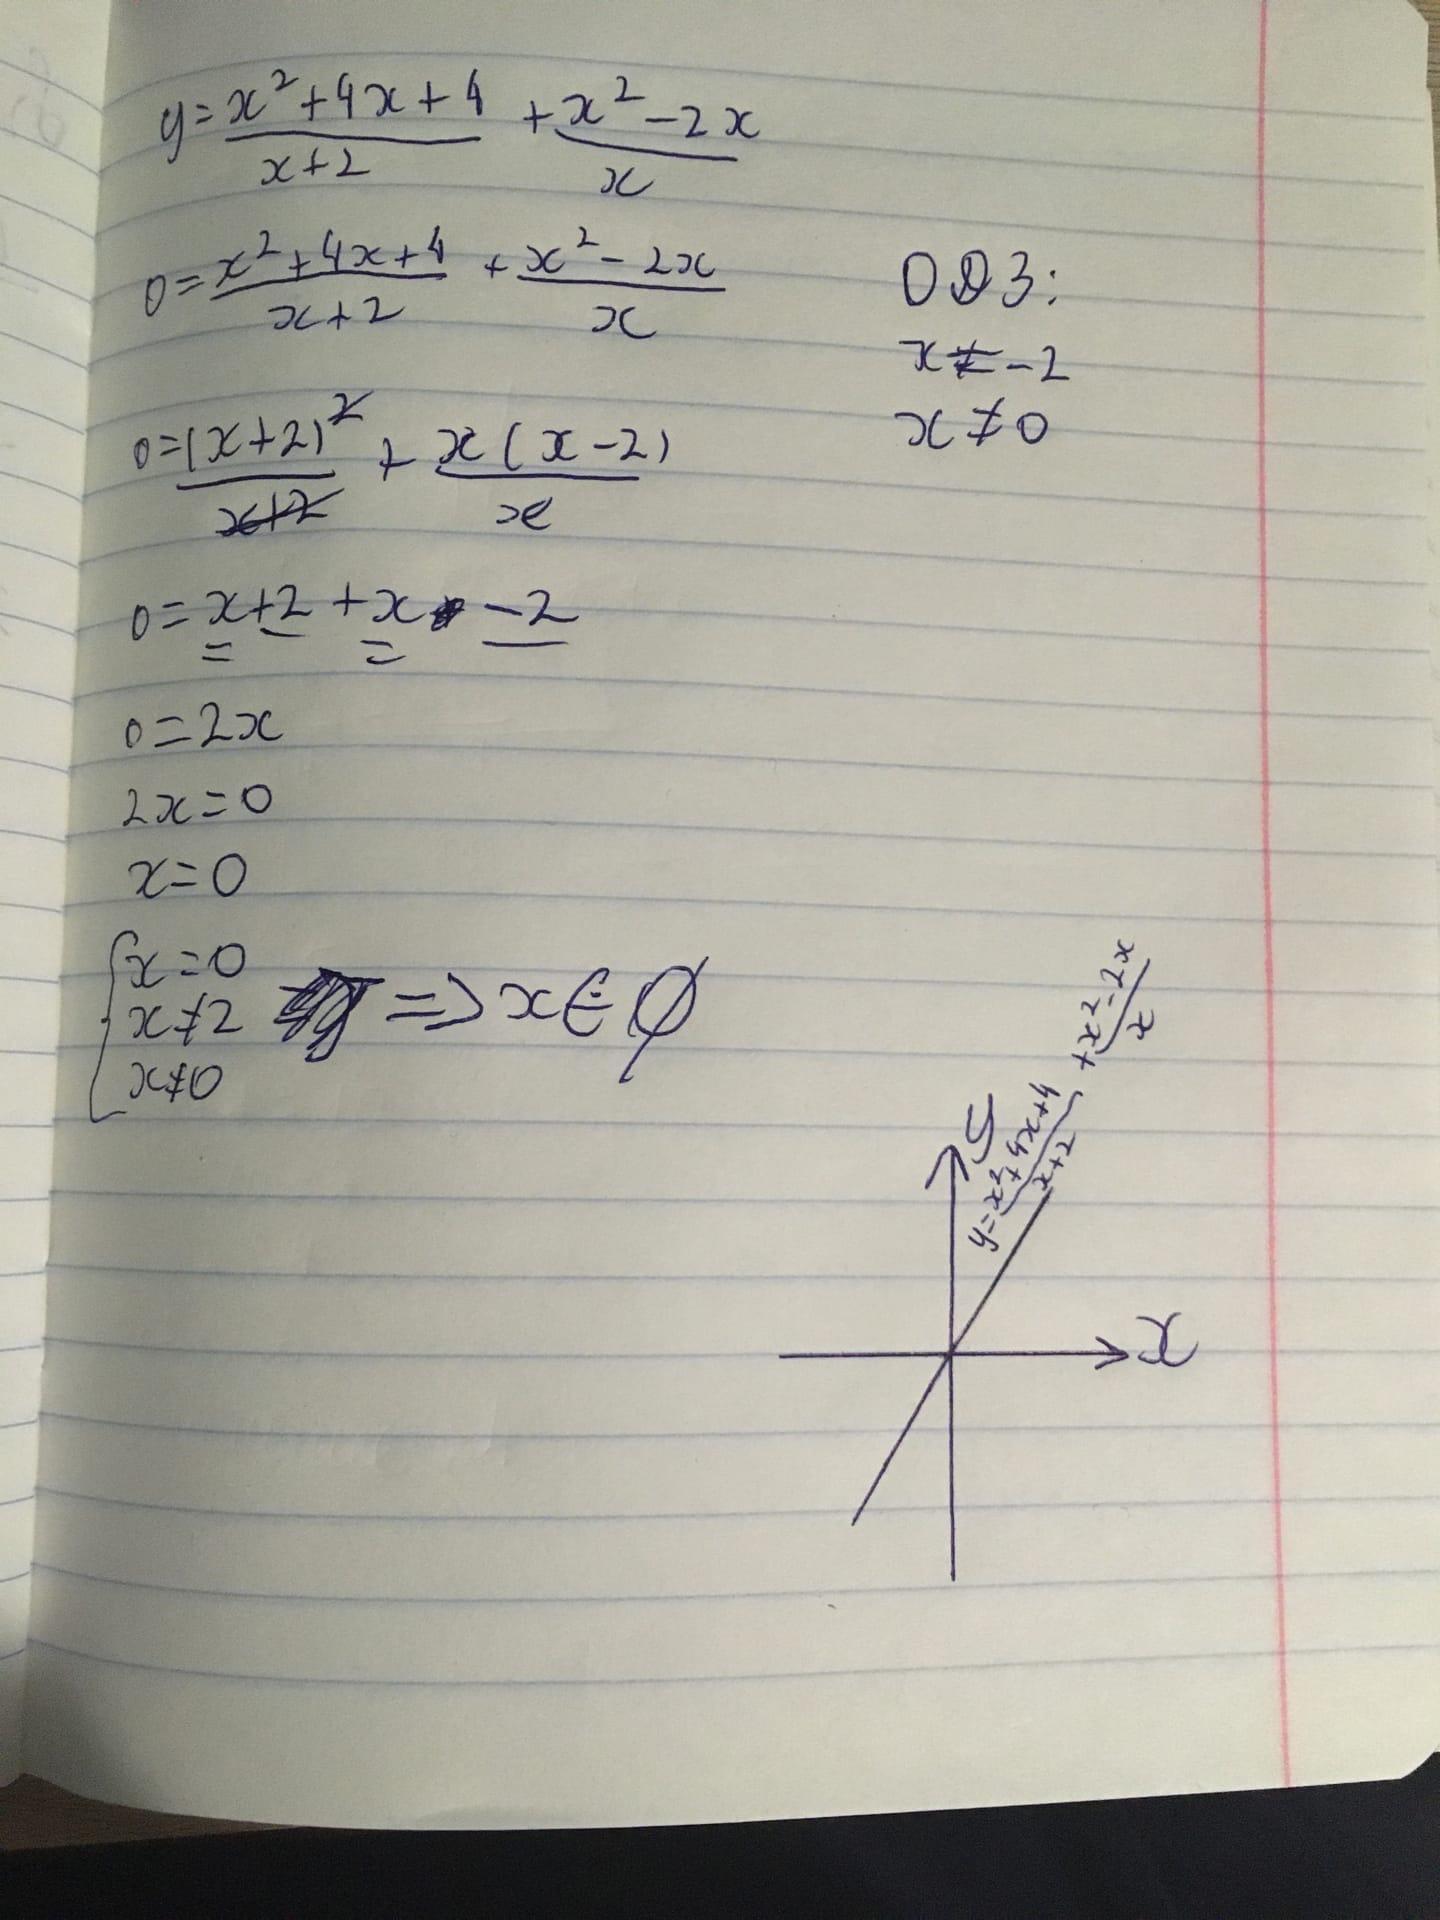 y = (x² + 4x + 4)/(x + 2) + (x² - 2x)/x
0 = (x² + 4x + 4)/(x + 2) + (x² - 2x)/x
ОДЗ:
x ≠ -2
x ≠ 0
0 = (x + 2)²/(x + 2) + x(x - 2)/x
0 = x + 2 + x - 2
0 = 2x
2x = 0
x = 0
{ x = 0
x ≠ 2
x ≠ 0 => x ∈ ∅
y = (x² + 4x + 4)/(x + 2) + (x² - 2x)/x
y
x